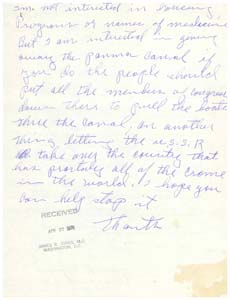 am not interested in Dancing
Programs or names of medicine
But I am interested in giving
away the panma Canal if
you do the people should
put all the members of Congress
down there to pull the boats
thru the Canal, an another
thing letting the U.S.S.R
take over the country that
has all of the crome
in the world. I hope you
can help stop it
Thanks
RECEIVED
APR
JAMES R. JONES, M.C.
WASHINGTON, D.C.